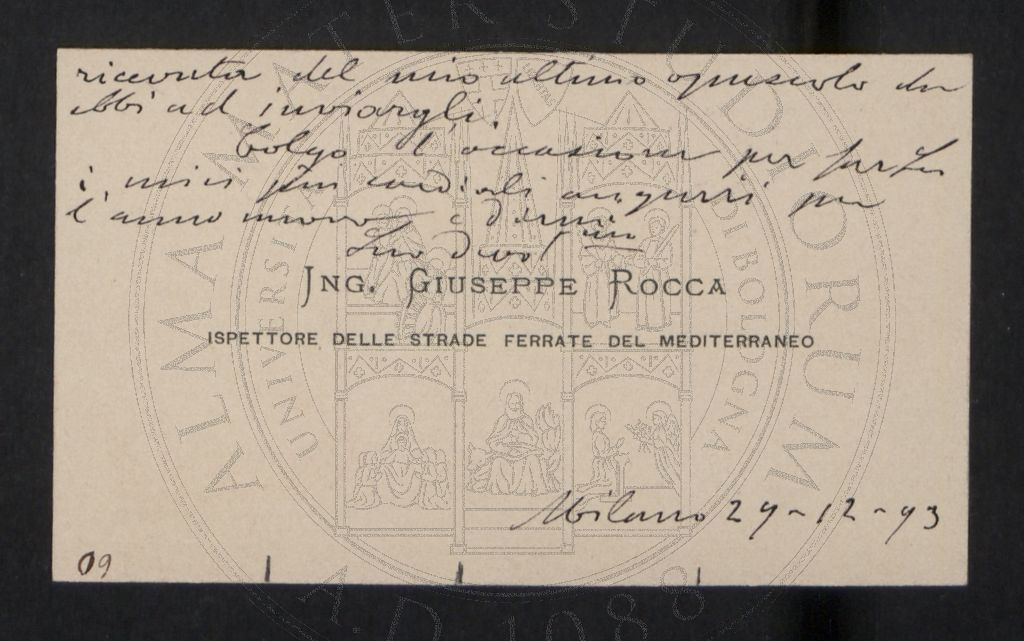 ricevuta del mio ultimo opuscolo che
ebbi ad inviargli.
Colgo l'occasione per farLe
i miei più cordiali auguri per
l'anno nuovo e dirmi
Suo Devot mo
ING. GIUSEPPE ROCCA
ISPETTORE DELLE STRADE FERRATE DEL MEDITERRANEO
Milano 29-12-93
09
ALMA MATER STUDIORUM
UNIVERSITÀ DI BOLOGNA
A.D. 1088